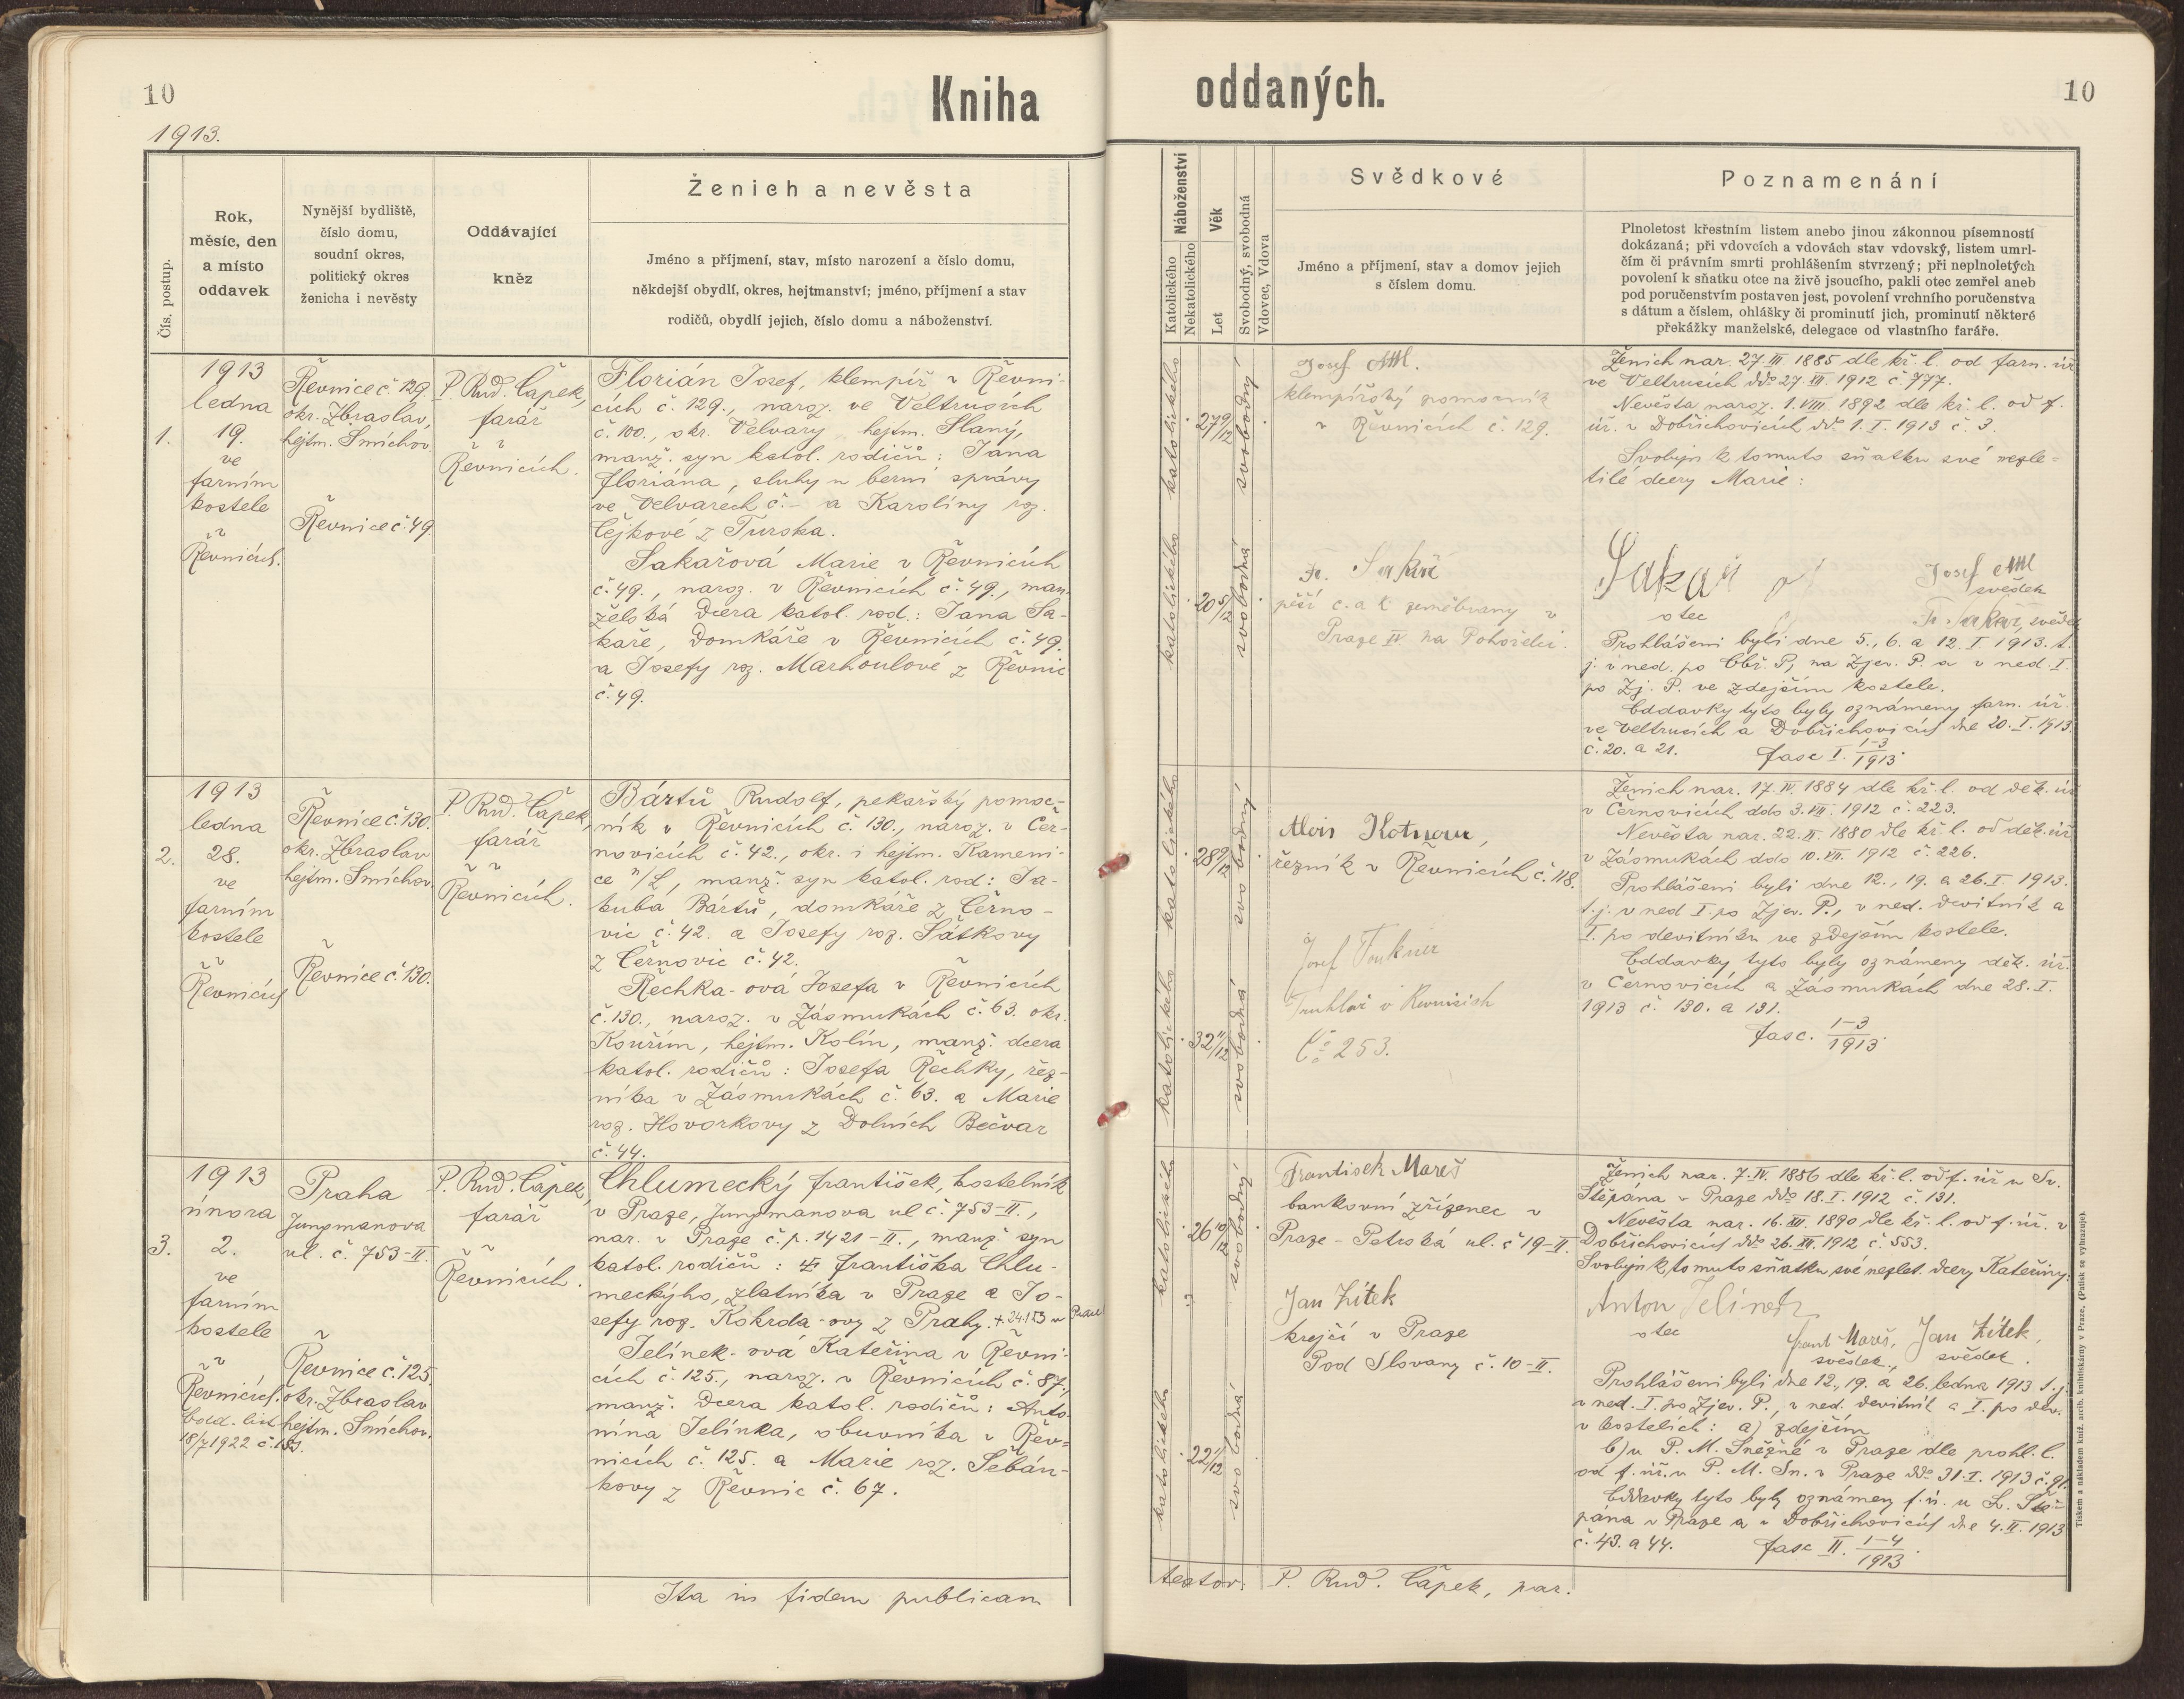 10
Kniha
1913.
Čís. postup.
Rok,
měsíc, den
a místo
oddavek
Nynější bydliště,
číslo domu,
soudní okres,
politický okres
ženicha i nevěsty
Oddávající
kněz
Ženich a nevěsta
Jméno a příjmení, stav, místo narození a číslo domu,
někdejší obydlí, okres, hejtmanství; jméno, příjmení a stav
rodičů, obydlí jejich, číslo domu a náboženství.
1.
1913
ledna
19.
ve
farním
kostele
v
Řevnicích.
Řevnice č 129.
okr. Zbraslav,
hejtm. Smíchov.
Řevnice č. 49
P. Rud. Čapek,
farář
v
Řevnicích.
Florián Josef, klempíř v Řevni-
cích č. 129., naroz. ve Veltrusích
č. 100., okr. Velvary hejtm. Slaný,
manž. syn katol. rodičů: Jana
Floriána, sluhy u berní správy
ve Velvarech č. – a Karolíny roz.
Čejkové z Turska.
Sakařová Marie v Řevnicích
č. 49., naroz. v Řevnicích č. 49., man-
želská dcera katol. rod.: Jana Sa-
kaře, domkáře v Řevnicích č. 49.
a Josefy roz. Marhoulové z Řevnic
č. 49.
2.
1913
ledna
28.
ve
farním
kostele
v
Řevnicích
Řevnice č. 130.
okr. Zbraslav
hejtm. Smíchov.
Řevnice č. 130.
P. Rud. Čapek,
farář
v
Řevnicích.
Bártů Rudolf, pekařský pomoc-
ník v Řevnicích č. 130., naroz. v Čer-
novicích č. 42., okr. i hejtm. Kameni-
ce n/L, manž. syn katol. rod: Ja-
kuba Bártů, domkáře z Černo-
vic č. 42. a Josefy roz. Šátkovy
z Černovic č. 42.
Řechka-ová Josefa v Řevnicích
č. 130., naroz. v Zásmukách č. 63. okr.
Kouřim, hejtm. Kolín, manž. dcera
katol. rodičů: Josefa Řechky, řez-
níka v Zásmukách č. 63. a Marie
roz. Hovorkovy z Dolních Bečvar
č. 44.
3.
1913
února
2.
ve
farním
kostele
v
Řevnicích.
Odd. list
18/7 1922 č.
Praha
Jungmanova
ul. č. 753-II.
Řevnice č. 125.
okr. Zbraslav
hejtm. Smíchov.
P. Rud. Čapek,
farář
v
Řevnicích.
Chlumecký František, hostelník
v Praze, Jungmanova ul č. 753-II.,
nar. v Praze č. p. 1421-II., manž. syn
katol. rodičů: Františka Chlu-
meckýho, zlatníka v Praze a Jo-
sefy roz. Kokrda-ovy z Prahy.
Jelínek-ová Kateřina v Řevni-
cích č. 125., naroz. v Řevnicích č. 87.,
manž. dcera katol. rodičů: Anto-
nína Jelínka, obuvníka v Řev-
nicích č. 125. a Marie roz. Šebán-
kovy z Řevnic č. 67.
Ita in fidem publicam
oddaných.
10
Náboženství
Katolického
Nekatolického
Věk
Let
Svobodný, svobodná
Vdovec, Vdova
Svědkové
Jméno a příjmení, stav a domov jejich
s číslem domu.
Poznamenání
Plnoletost křestním listem anebo jinou zákonnou písemností
dokázaná; při vdovcích a vdovách stav vdovský, listem umrl-
čím či právním smrti prohlášením stvrzený; při neplnoletých
povolení k sňatku otce na živě jsoucího, pakli otec zemřel aneb
pod poručenstvím postaven jest, povolení vrchního poručenstva
s dátum a číslem, ohlášky či prominutí jich, prominutí některé
překážky manželské, delegace od vlastního faráře.
katolického
27 9/12
svobodný
katolického
20 5/12
svobodná
Josef
klempířský pomocník
v Řevnicích č. 129.
Fr. Sakař
pěší c. a k. zeměbrany v
Praze IV na Pohořelci.
Ženich nar. 27. III. 1885 dle kř. l. od farn. úř.
ve Veltrusích ddo 27. 1912 č. 777.
Nevěsta naroz. 1. VIII. 1892 dle kř. l. od f.
úř. v Dobřichovicích ddo 1. I. 1913 č. 3.
Svoluji k tomuto sňatku své nezle-
tilé dcery Marie:
Sakař
otec
Josef
svědek
Fr. Sakař, svědek
Prohlášeni byli dne 5., 6. a 12. I. 1913. t.
j. v ned. po Obř. P, na Zjev. P. a v ned. I.
po Zj. P. ve zdejším kostele.
Oddavky tyto byly oznámeny farn. úř.
ve Veltrusích a Dobřichovicích dne 20. I. 1913.
č. 20. a 21. fasc I. 1-3/1913.
katolického
28 9/12
svobodný
katolického
32 11/12
svobodná
Alois Kotnour,
řezník v Řevnicích č. 118.
Josef
Truhlář v Řevnicích
Čč 253.
Ženich nar. 17. IV. 1884 dle kř. l. od děk. úř
v Černovicích ddo 3. VII. 1912 č. 223.
Nevěsta nar. 22. II. 1880 dle kř. l. od děk. úř
v Zásmukách ddo 10. VII. 1912 č. 226.
Prohlášeni byli dne 12., 19. a 26. I. 1913.
t. j. v ned I. po Zjev. P., v ned. devítník a
I. po devítníku ve zdejším kostele.
Oddavky tyto byly oznámeny děk. úř.
v Černovicích a Zásmukách dne 28. I.
1913 č. 130. a 131.
fasc. 1-3/1913.
katolického
26 10/12
svobodný
katolického
22 1/12
svobodná
František Mareš
bankovní zřízenec v
Praze - Petrská ul. č 19-II.
Jan Zítek
krejčí v Praze
Pod Slovany č. 10-II.
Ženich nar. 7. IV. 1886 dle kř. l. od f. úř u Sv.
Štěpána v Praze ddo 18. I. 1912 č. 131.
Nevěsta nar. 16. XII. 1890 dle kř. l. od f. úř. v
Dobřichovicích ddo 26. XII. 1912 č. 553.
Svoluji k tomuto sňatku své nezlet. dcery Kateřiny:
Anton Jelinek
otec
Frant Mareš,
svědek,
Jan Zítek,
svědek.
Prohlášeni byli dne 12., 19. a 26. ledna 1913 t. j.
v ned. I. po Zjev. P., v ned. devítník a I. po dev.
v kostelích: a) zdejším
b) u P. M. Sněžné v Praze dle prohl. l.
od f. úř. u P. M. Sn. v Praze ddo 31. I. 1913 č. 91.
Oddavky tyto byly oznámeny f. ú. u Sv. Ště-
pána v Praze a v Dobřichovicích dne 4. II. 1913
č. 43. a 44. fasc II. 1-4/1913.
testor. P. Rud. Čapek, par.
Tiskem a nákladem kníž. arcib. knihtiskárny v Praze. (Patisk se vyhrazuje).